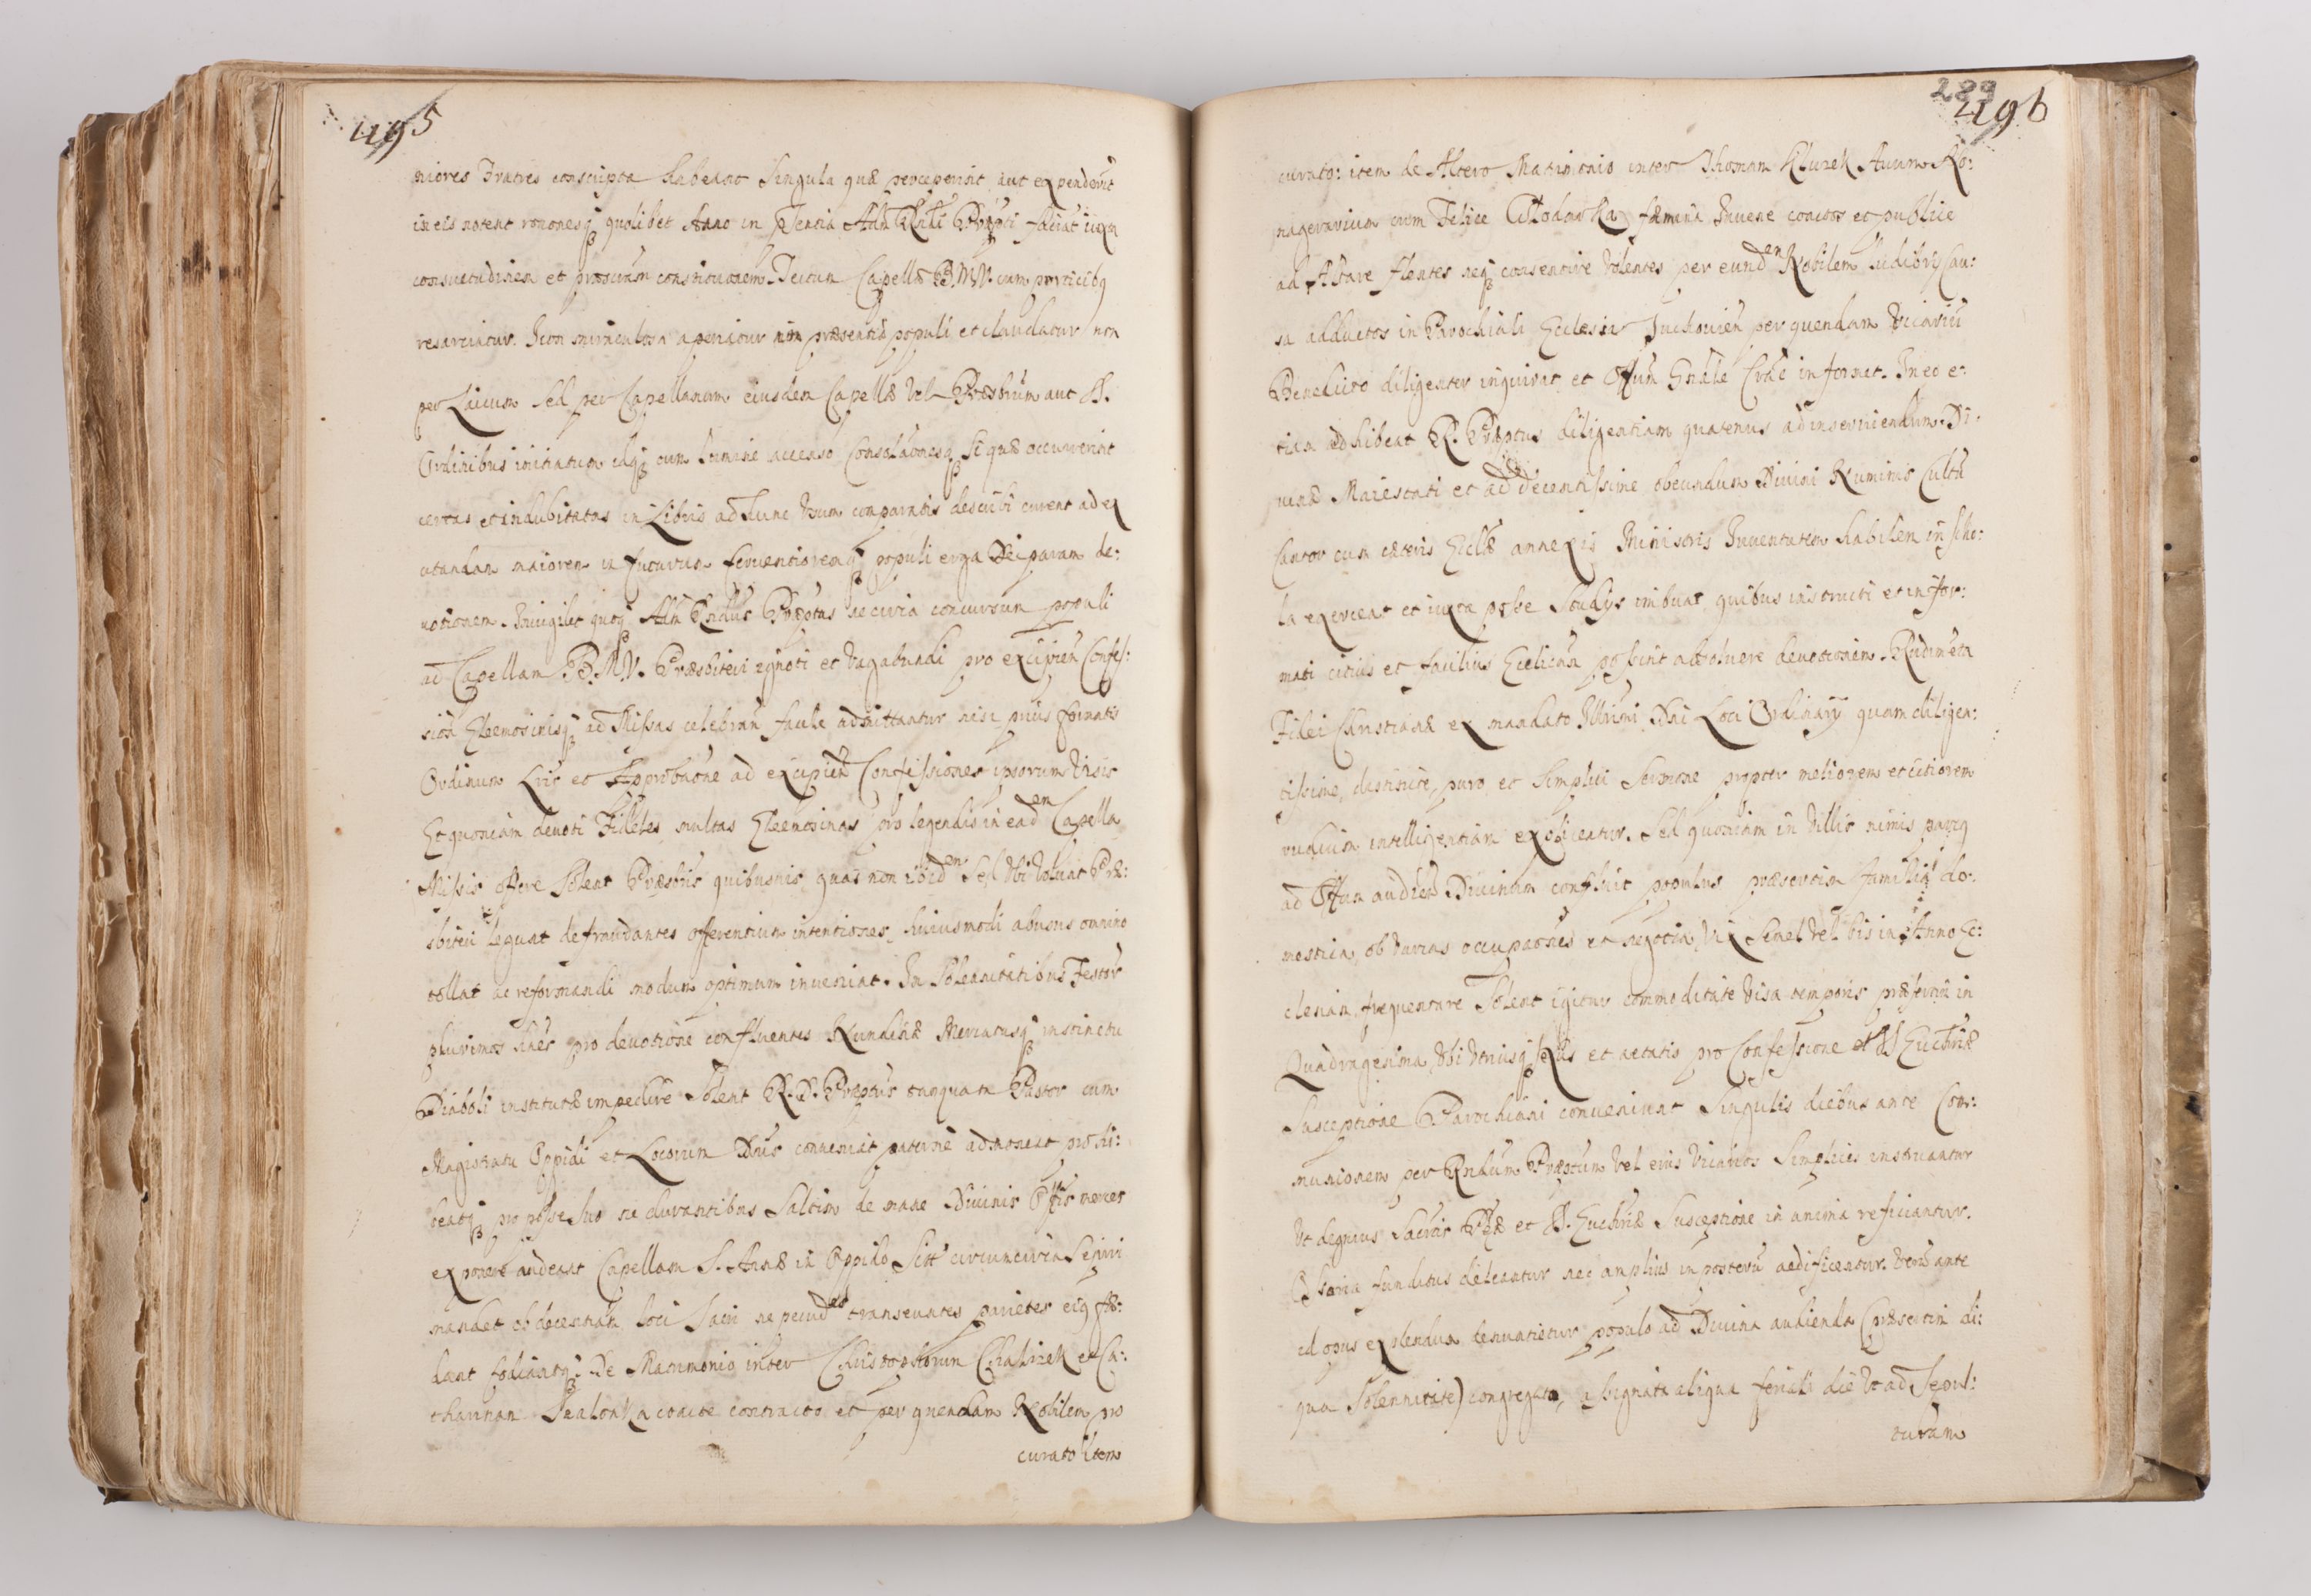 495
niores Fratres conscripta habeant Singula quæ perceperint aut expenderint
in eis notent rationesq quolibet Anno in Pñtia Adm Rndi Præpti faciāt iuxta
consuetudinem et præscriām constitutionem. Tectum Capellæ B.M.V. cum porticibq
resarciatur. Icon miraculosa aperiatur in præsentia populi et claudatur non
per Laicum sed per Capellanum eiusdem Capellæ vel Præsbrum aut S.
Ordinibus initiatum idq cum lumine accenso Consolaonesq si quæ occurrerint
certas et indubitatas in Libris ad hunc usum comparatis describi curent ad ex
citandam maiorem in futurum ferventioremq populi erga Deiparam de:
uotionem. Inuigilet quoq Adm Rndus Præptus ne circa concursum populi
ad Capellam B.M.V. Præsbiteri ignoti et vagabundi pro excipien Confes:
sion Eleemosinisq ad Missas celebran facile admittantur nisi prius formatis
Ordinum Lris et Approbaone ad excipien Confessiones ipsorum visis
Et quoniam deuoti Fideles multas Eleemosinas pro legendis in eadem Capella
Missis offere solent Præsbris quibusuis quas non ibidem sed ubi volunt Præ:
sbiteri legunt defraudantes offerentium intentiones, huiusmodi abusus omnino
tollat ac reformandi modum optimum inueniat. In Solennitatibus Festor
plurimos hnes pro deuotione confluentes Nundinæ Mercatusq instinctu
Diaboli institutæ impedire solent R.D. Præptus tanquam Pastor cum
Magistratu Oppidi et Locorum Dnis conueniat paterne admoneat prohi:
beatq pro posse suo ne durantibus saltim de mane Diuinis Offis merces
exponere audeant Capellam S. Annæ in Oppido Sitt circumcirca sepiri
mandet ob decentiam loci Sacri ne pecudes transeuntes parietes eiq fæ:
dant fodiantq. De Matrimonio inter Christophorum Chalizek et Ca:
tharinam coacte contracto et per quendam Nobilem pro
curato Item
289
496
curato: item de Altero Matrimonio inter Thomam Klurek Auum
cum Felice fæmina Iuuene coactos et publice
ad Altare flentes neq consentire volentes per eundem Nobilem ludibrij Cau:
sa adductos in Parochiali Ecclesia per quendam Vicariū
Benedicto diligenter inquirat et Offium Gnale Crac informet. In eo e:
tiam adhibeat R. Præptus diligentiam quatenus ad inseruiendum Di:
uinæ Maiestati et ad decentissime obeundum Diuini Numinis Cultū
Cantor cum cæteris Ecclæ annexis Ministris Iuuentutem habilem in scho:
la exerceat et iuxta posse Studijs imbuat quibus instructi et infor:
mati citius et facilius Ecclicam possint absoluere deuotionem. Rudimēta
Fidei Christianæ ex mandato Illrimi Dni Loci Ordinarij quam diligen:
tissime, distincte, puro et simplici Sermone propter meliorem et citiorem
rudium intelligentiam explicentur. Sed quoniam in Villis nimis parcq
ad Offium audien Diuinum confluit populus præsertim familia do:
mestica, ob varias occupaones et negotia, vix semel vel bis in Anno Ec:
clesiam frequentare solent igitur commoditate visa temporis præsertim in
Quadragesima, ubi vtriusq sexus et aetatis pro Confessione et SS Euchriæ
Susceptione Parochiani conueniunt Singulis diebus ante Com:
munionem per Rndum Præptum vel eius Vicarios Simplices instruantur
Vt dignius Sacris Pœæ et S. Euchriæ Susceptione in anima reficiantur.
Ossaria funditus deleantur nec amplius in posterū aedificentur. Verū ante
id opus explendum denuntietur populo ad Diuina audienda (præsertim ali:
qua Solennitate) congregato, assignata aliqua feriali die vt ad Sepul:
turam